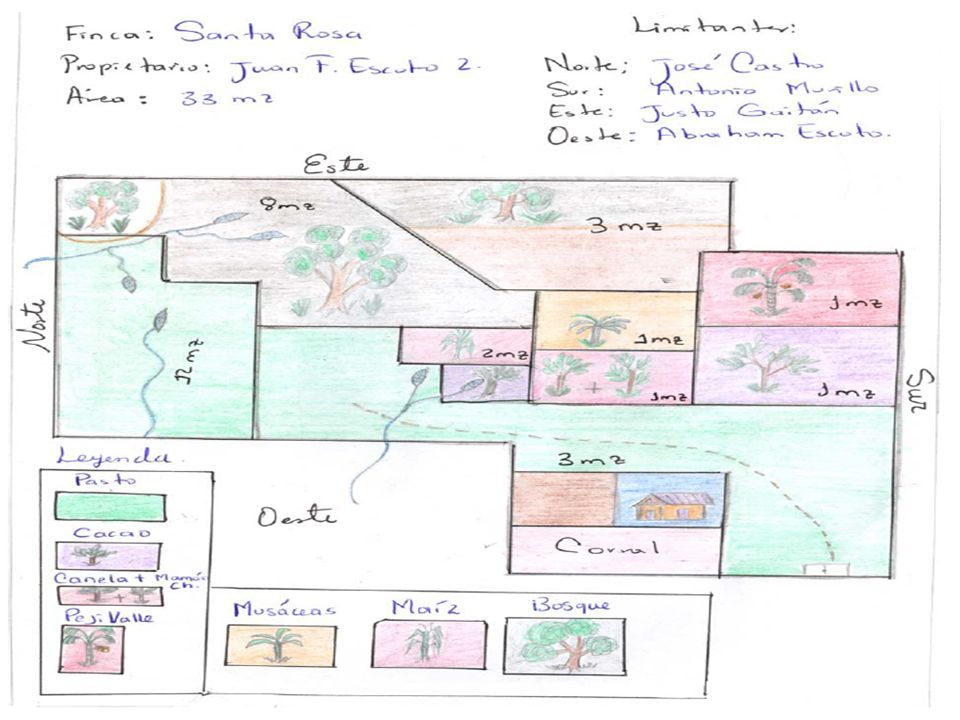 Finca: Santa Rosa
Propietario: Juan F. Escoto Z.
Área: 33 mz
Limitantes:
Norte: José Castro
Sur: Antonio Murillo
Este: Justo Gaitán
Oeste: Abraham Escoto.
Este
8mz
3 mz
1mz
1mz
2mz
1mz
1mz
12 mz
Norte
Sur
3 mz
Corral
Oeste
Leyenda.
Pasto
Cacao
Canela + Mamón
Ch.
PejiValle
Musáceas
Maíz
Bosque